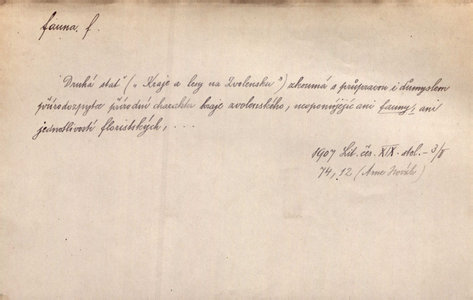 fauna, f.
Druhá stať („Kraje a lesy na Zvolensku") zkoumá s průpravou i důmyslem
přírodozpytce přírodní charakter kraje zvolenského, neopomíjejíc ani fauny, ani
jednotlivostí floristských, . . .
1907 Lit. čes. XIX. stol. – 3/I
74, 12 (Arne Novák)